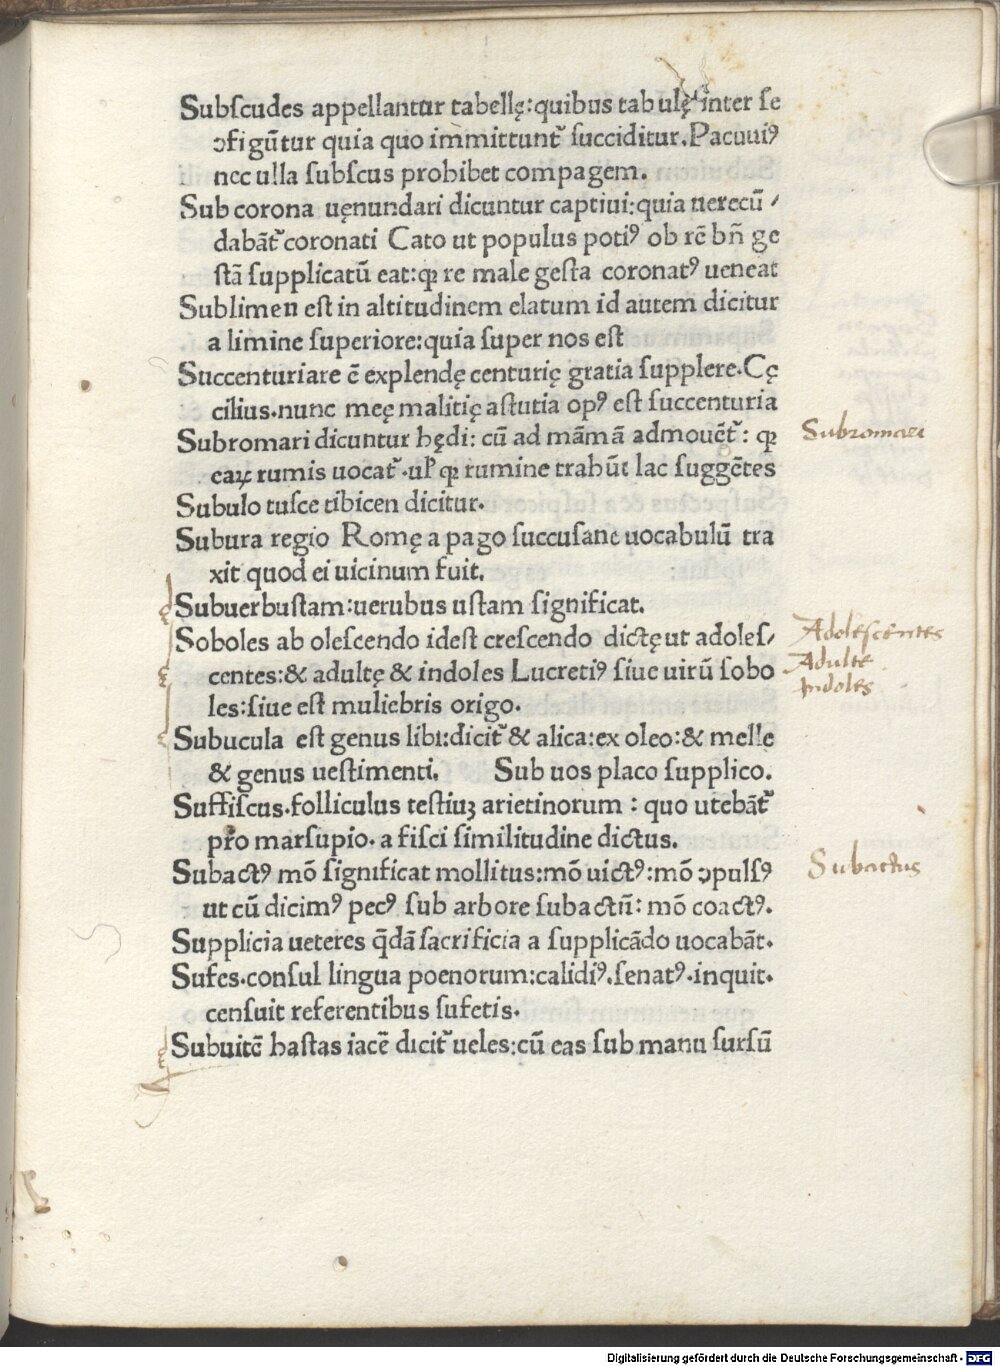 Subſcudes appellantur tabellę:quibus tabulę inter ſe
ɔfigūtur quia quo immittunt᷑ ſucciditur.Pacuuiꝰ
nec ulla ſubſcus prohibet compagem.
Sub corona uęnundari dicuntur captiui:quia uerecū/
dabāt᷑ coronati Cato ut populus potiꝰ ob rē bn̄ ge
ſtā ſupplicatū eat:ꝙ re male geſta coronatꝰ ueneat
Sublimen eſt in altitudinem elatum id autem dicitur
a limine ſuperiore:quia ſuper nos eſt
Succenturiare ē explendę centurię gratia ſupplere.Cę
cilius.nunc meę malitię aſtutia opꝰ eſt ſuccenturia
Subromari dicuntur hędi: cū ad māmā admouēt᷑: ꝙ
Subromari
eaꝝ rumis uocat᷑.ul̓ ꝙ rumine trahūt lac ſuggētes
Subulo tuſce tibicen dicitur.
Subura regio Romę a pago ſuccuſane uocabulū tra
xit quod ei uicinum fuit.
Subuerbuſtam:uerubus uſtam ſignificat.
Soboles ab oleſcendo ideſt creſcendo dictę ut adoleſ/
Adolescentes
centes:& adultę & indoles Lucretiꝰ ſiue uirū ſobo
Adulte
Indoles
les:ſiue eſt muliebris origo.
Subucula eſt genus libi:dicit᷑ & alica:ex oleo:& melle
& genus ueſtimenti. Sub uos placo ſupplico.
Suffiſcus.folliculus teſtiuꝫ arietinorum : quo utebāt᷑
pro marſupio. a fiſci ſimilitudine dictus.
Subactꝰ mō ſignificat mollitus:mō uictꝰ:mō ɔpulſꝰ
Subactus
ut cū dicimꝰ pecꝰ ſub arbore ſubactū: mō coactꝰ.
Supplicia ueteres q̄dā ſacrificia a ſupplicādo uocabāt.
Sufes.conſul lingua poenorum:calidiꝰ.ſenatꝰ.inquit.
cenſuit referentibus ſufetis.
Subuitē haſtas iacē dicit᷑ ueles:cū eas ſub manu ſurſū
Digitalisierung gefördert durch die Deutsche Forschungsgemeinschaft - DFG